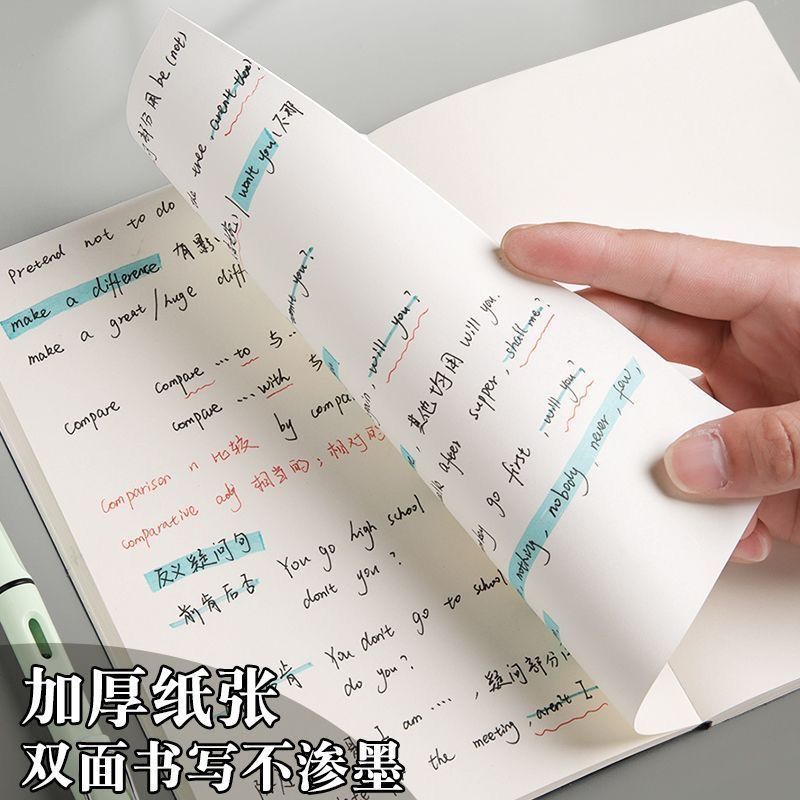 Pretend not to do
make a difference 有影
make a great/huge diff
compare compare ... to 与
compare ... with 与
by compa
comparison n 比较
comparative adj 相当的；相对的
反义疑问句 You go high school
don't you?
前肯后否
肯 You don't go to school
do you?
am ...., 疑问部分
the meeting, aren't I
部分用 be (not)
tree, aren't there?
/ won't you (不那
will you?
其他均用 will you.
after supper, shall me?
go first, will you?
nothing, nobody, never, few,
加厚纸张
双面书写不渗墨